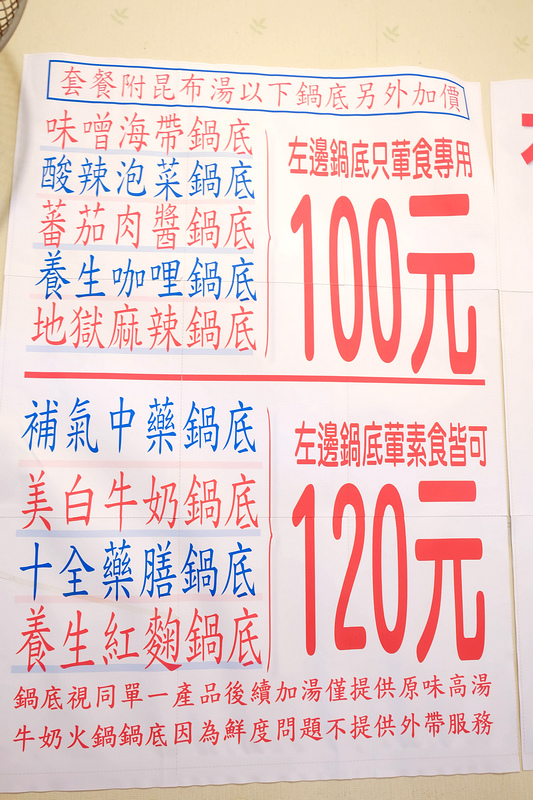 套餐附昆布湯以下鍋底另外加價
味噌海帶鍋底
酸辣泡菜鍋底
蕃茄肉醬鍋底
養生咖哩鍋底
地獄麻辣鍋底
左邊鍋底只葷食專用
100元
補氣中藥鍋底
美白牛奶鍋底
十全藥膳鍋底
養生紅麴鍋底
左邊鍋底葷素食皆可
120元
鍋底視同單一產品後續加湯僅提供原味高湯
牛奶火鍋鍋底因為鮮度問題不提供外帶服務